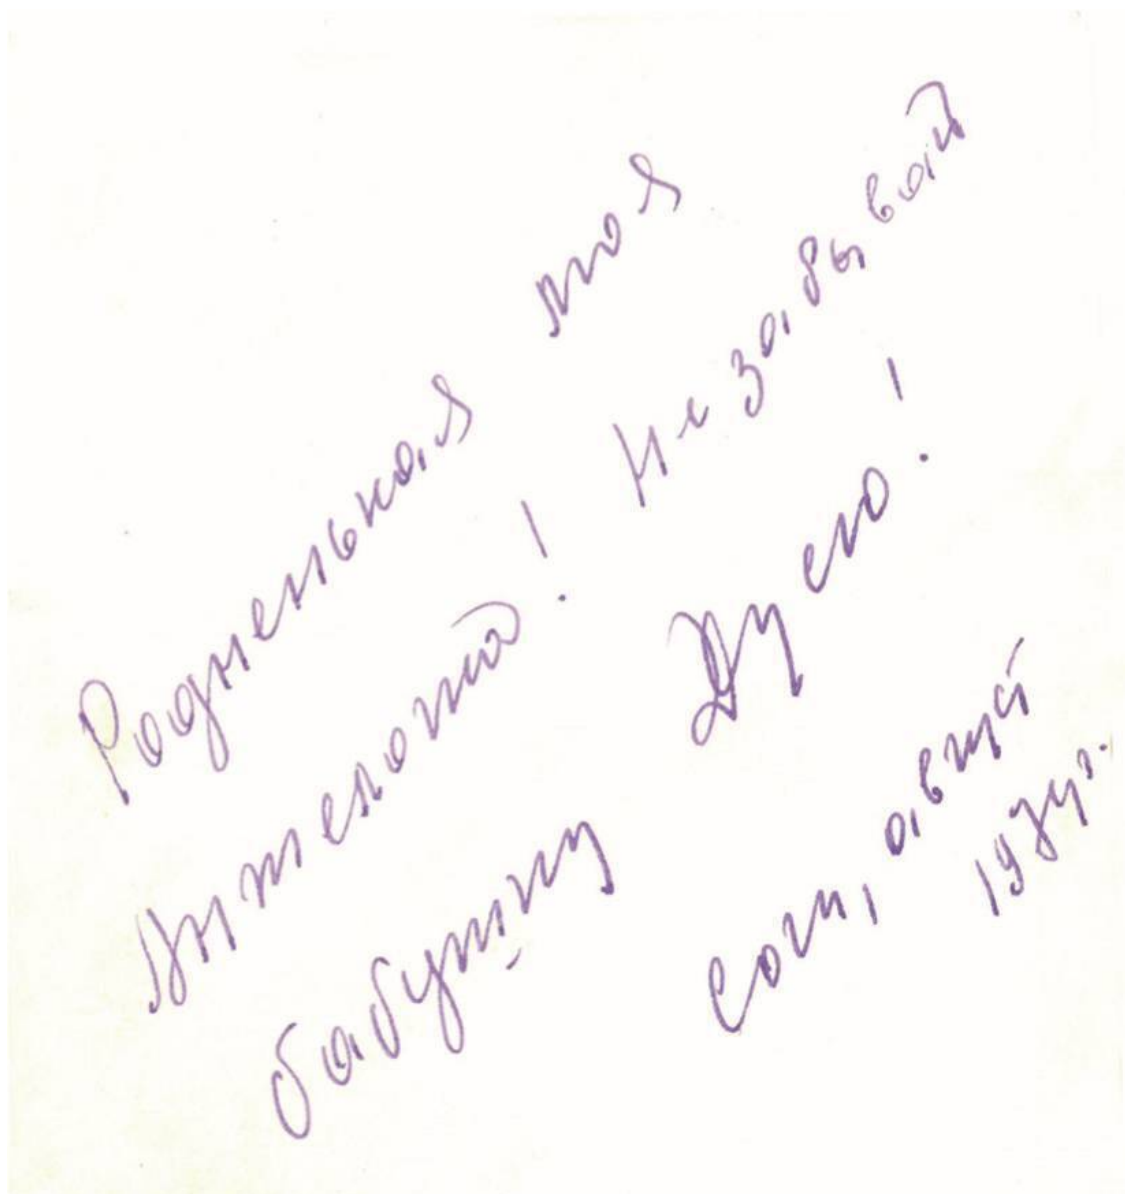 Родненькая моя
! Не забывай
бабушку Дусю!
Сочи, август
1974г.